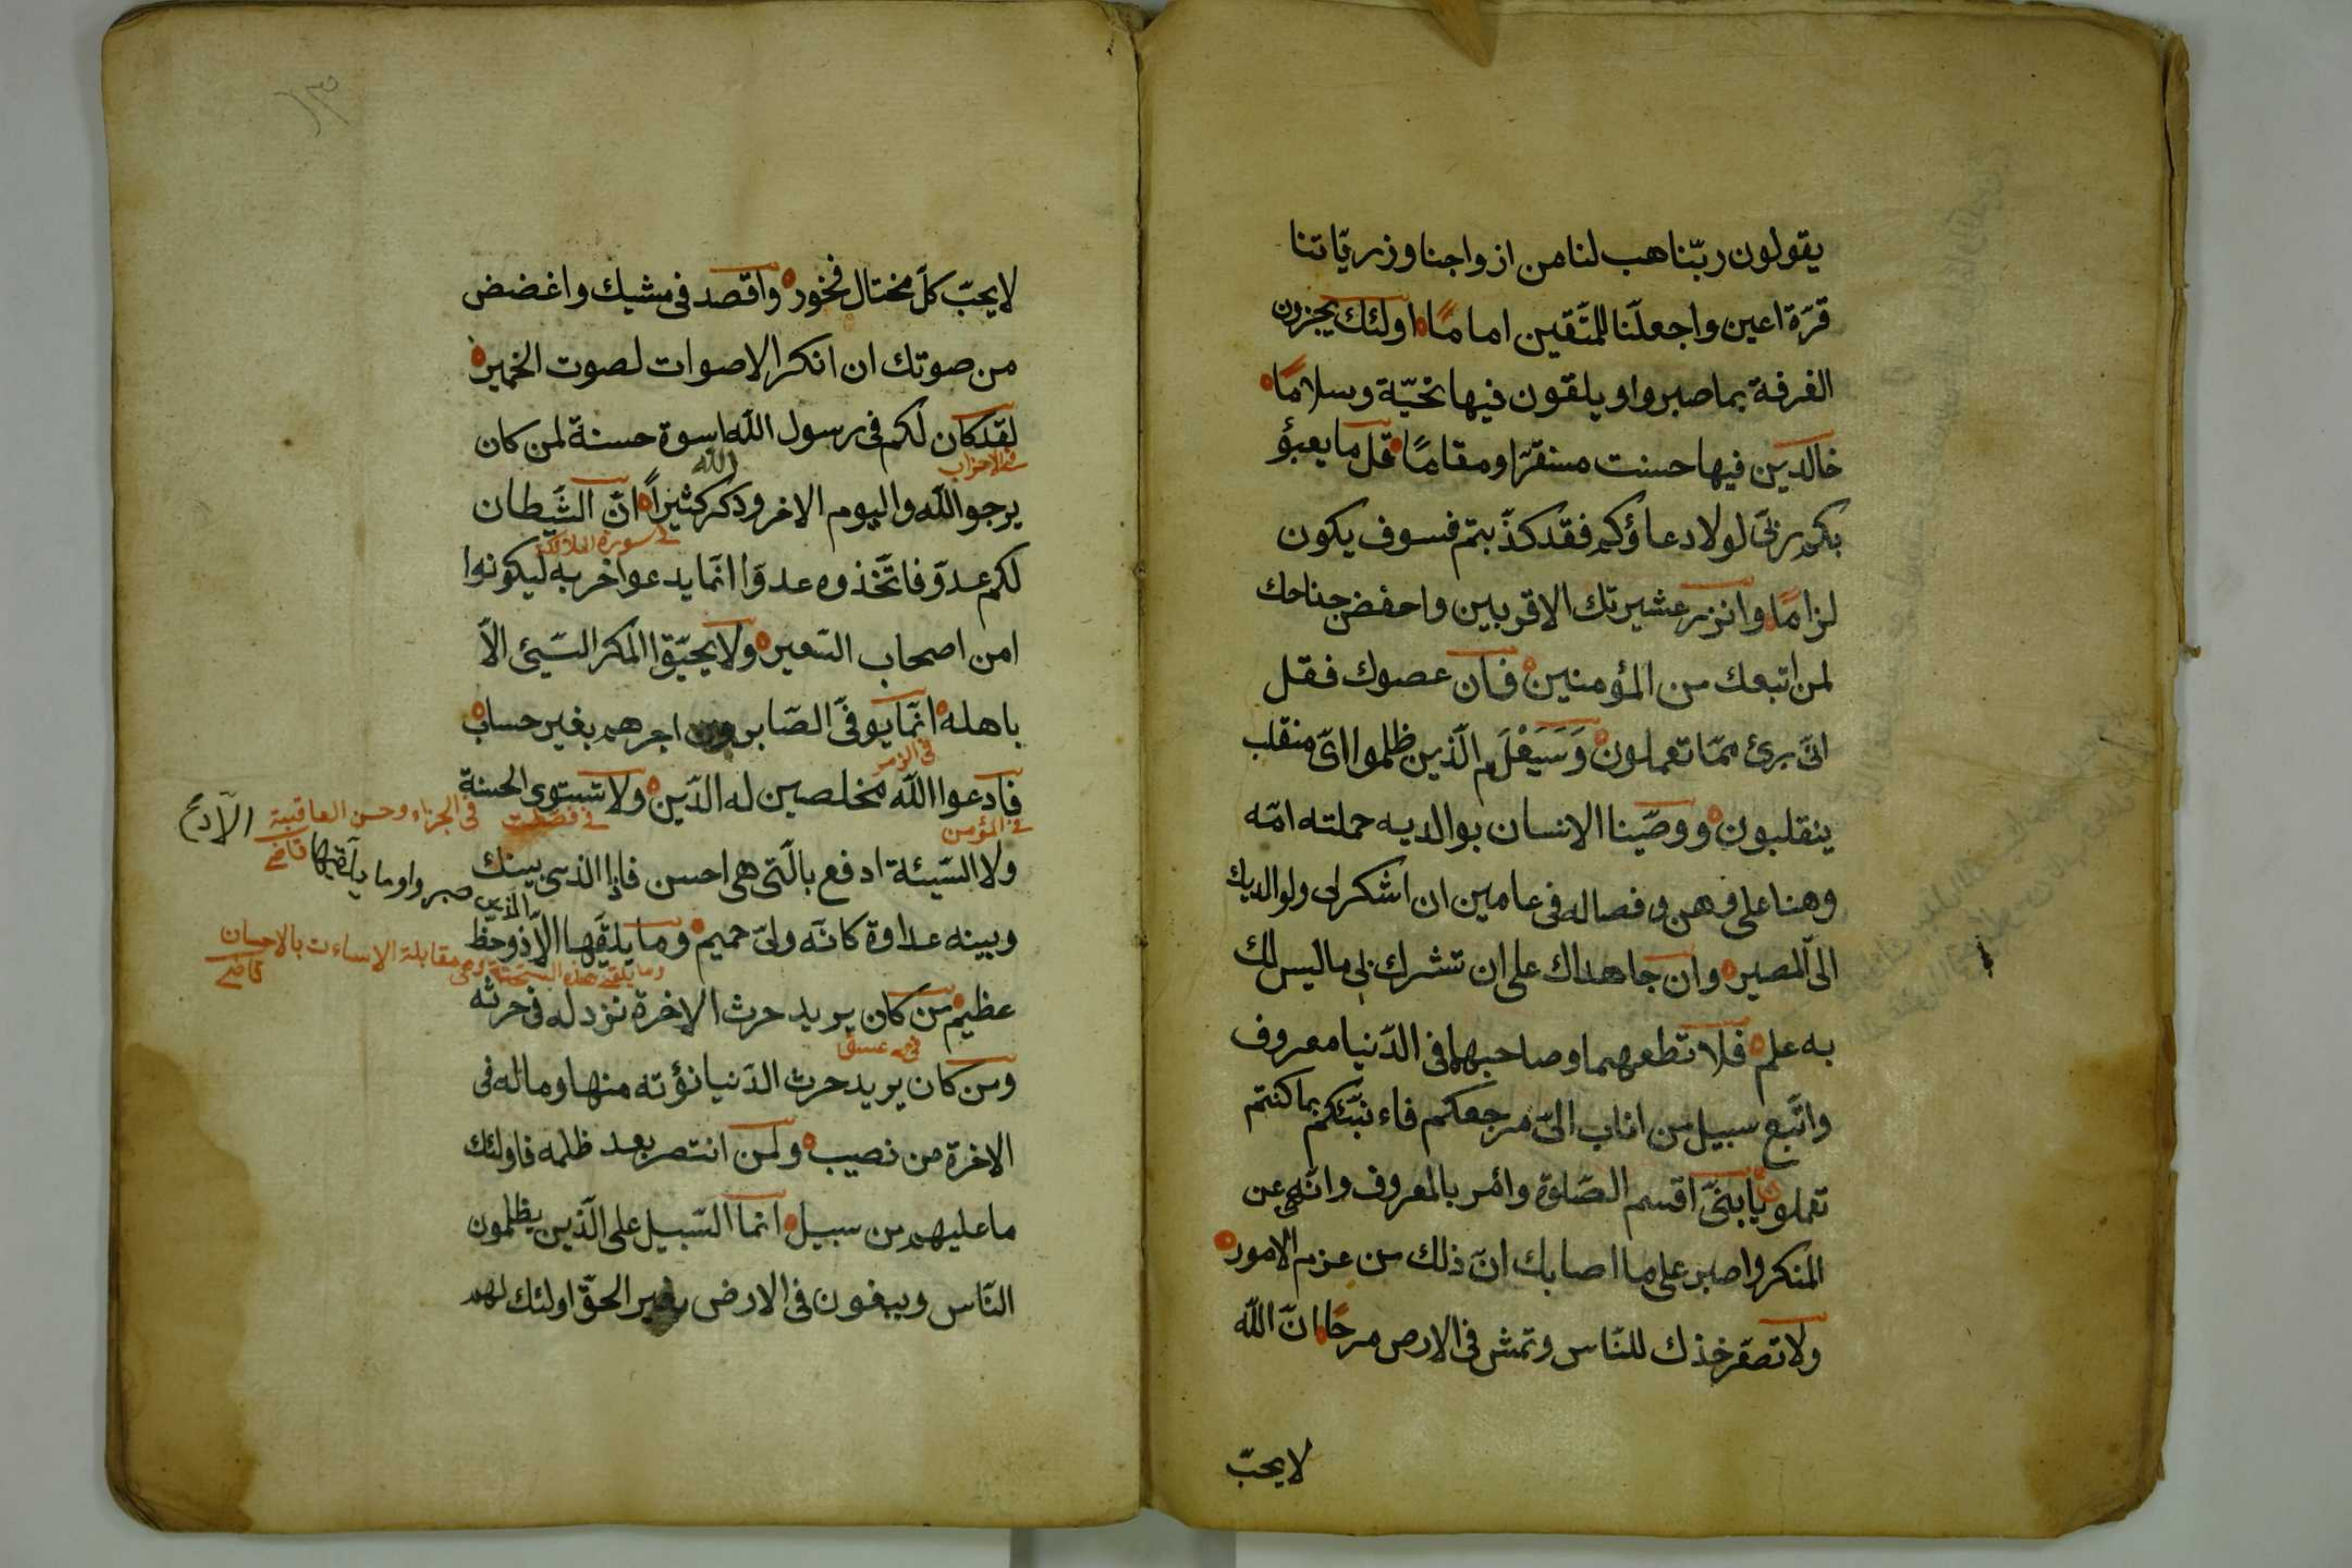 يقولون ربّنا هب لنا من ازواجنا وذريّاتنا
قرّة اعين واجعلنا للمتّقين اماما اولئك يجزون
الغرفة بما صبروا ويلقون فيها تحيّة وسلامًا
خالدين فيها حسنت مستقرّا ومقامًا قل ما يعبؤ
بكم ربّى لولا دعاؤكم فقد كذّبتم فسوف يكون
لزامًا وانزر عشيرتك الاقربين واحفض جناحك
لمن اتبعك من المؤمنين فان عصوك فقل
انّى برئ ممّا تعملون وَسَيَعْلَم الّذين ظلموا اىّ منقلب
ينقلبون ووصّينا الانسان بوالديه حملته امّه
وهنا على وهن وفصاله فى عامين ان اشكر لى ولوالديك
الىّ المصير وان جاهداك على ان تشرك بى ما ليس لك
به علم فلا تطعهما وصاحبهما فى الدّنيا معروف
واتّبع سبيل من اناب الىّ مرجعكم فاء نبّئكم بما كنتم
تعملو يا بنىّ اقسم الصّلوة وائمر بالمعروف وانهى عن
المنكر واصبر على ما اصابك انّ ذلك من عزم الامور
ولا تصقر خذك للنّاس وتمش فى الارص مرحًا انّ اللّه
لا يحبّ
لا يحبّ كلّ مختال فخور واقصد فى مشيك واغضض
من صوتك ان انكر الاصوات لصوت الخمير
لقد كان لكم فى رسول اللّه اسوة حسنة لمن كان
فى الاحزاب
اللّه
يرجو اللّه واليوم الاخر وذكر كثيرًا انّ الشّيطان
فى سورة الملائكة
لكم عدوّ فاتّخذوه عدوّا انّما يدعوا خربه ليكونوا
امن اصحاب السّعير ولا يحيّق المكر السّيئ الّا
باهله انّما يوفّى الصّابرون اجرهم بغير حساب
فى الزمر
فادعوا اللّه مخلصين له الدّين ولا تستوى الحسنة
فى المؤمن
فى فصّلت
فى الجزاء وحسن العاقبة
قاضى
ولا السّيئة ادفع بالّتى هى احسن فاذا الذى بينك
وما يلقّيها الّا
الّذين صبروا
وبينه عداوة كانّه ولىّ حميم وما يلقّيها الّا ذو حظ
وما يلقى هذه السجيّة وهى مقابلة الاساءت بالاحسان
قاضى
عظيم من كان يريد حرث الاخرة نزد له فى حرثه
فى حم عسق
ومن كان يريد حرث الدّنيا نؤته منها وماله فى
الاخرة من نصيب ولمن انتصر بعد ظلمه فاولئك
ما عليهم من سبيل انما السّبيل على الّذين يظلمون
النّاس ويبغون فى الارض بغير الحقّ اولئك لهم